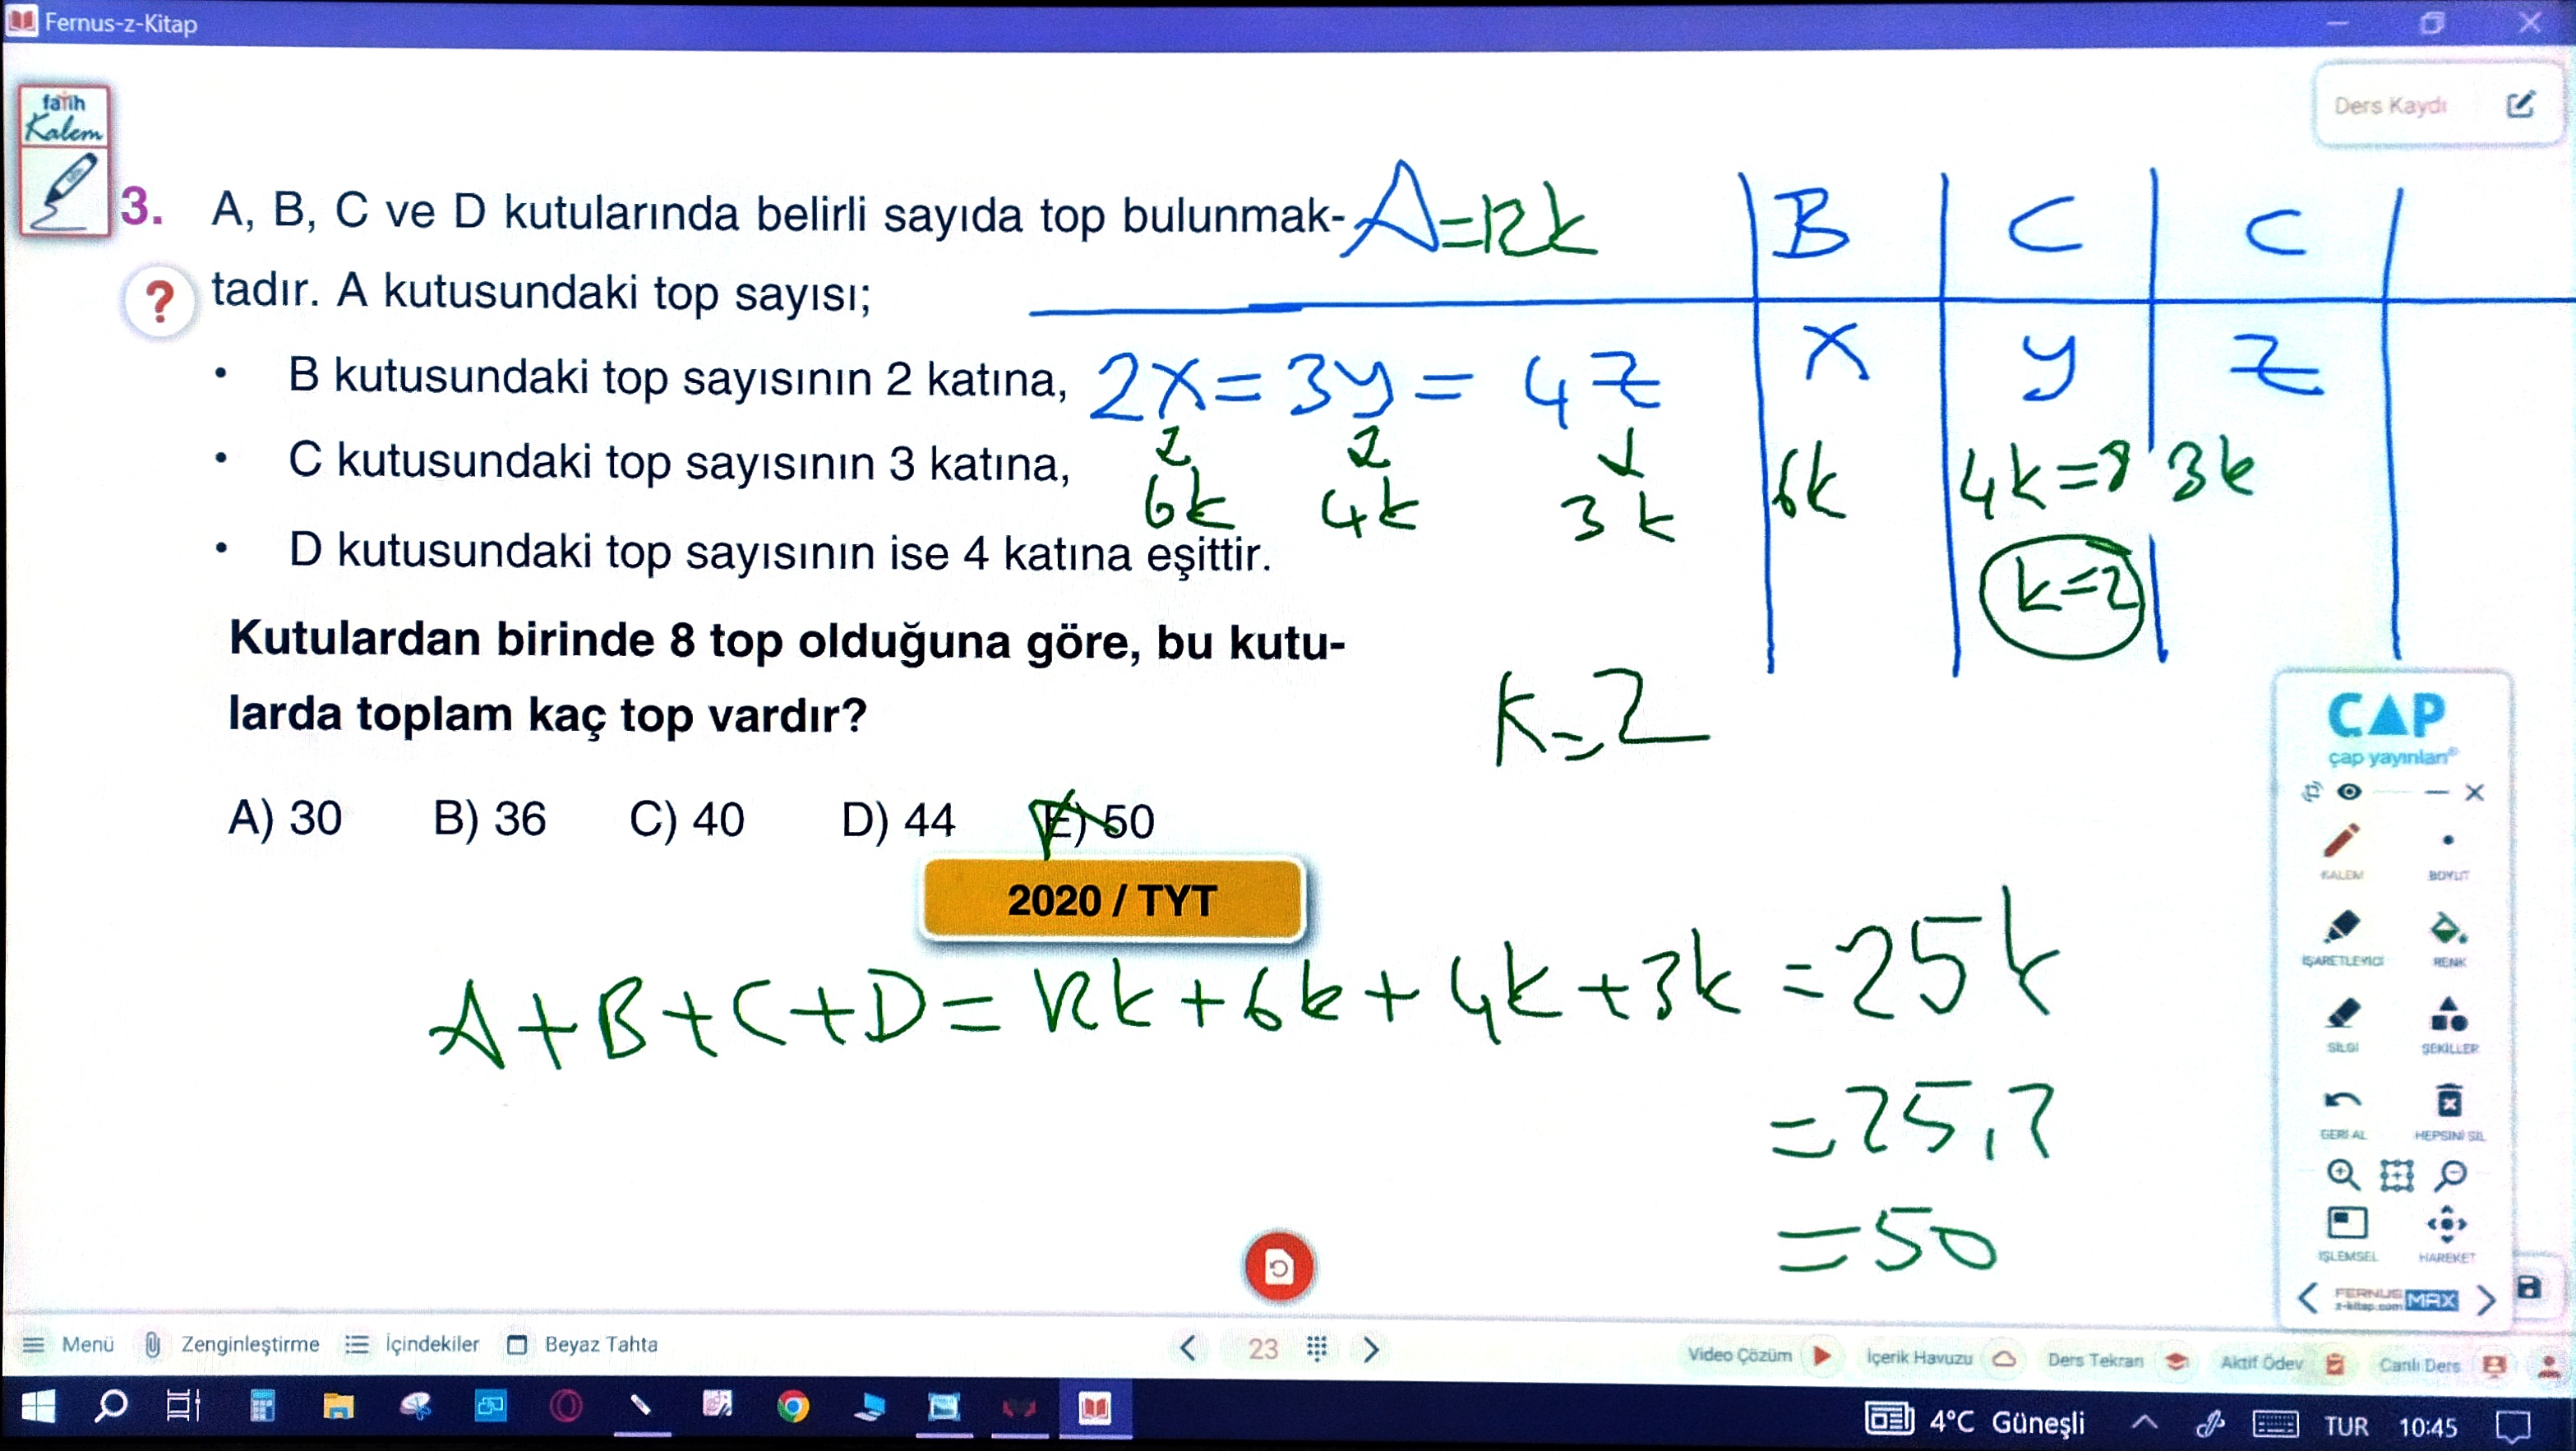 Fernus-z-Kitap
fatih
Kalem
Ders Kaydı
3. A, B, C ve D kutularında belirli sayıda top bulunmak-
tadır. A kutusundaki top sayısı;
• B kutusundaki top sayısının 2 katına,
• C kutusundaki top sayısının 3 katına,
• D kutusundaki top sayısının ise 4 katına eşittir.
Kutulardan birinde 8 top olduğuna göre, bu kutu-
larda toplam kaç top vardır?
A) 30 B) 36 C) 40 D) 44 E) 50
2020 / TYT
A=12k
B C C
x y z
2x = 3y = 4z
6k 4k 3k
6k 4k=8 3k
k=2
k=2
A+B+C+D = 12k + 6k + 4k + 3k = 25k
= 25.2
= 50
ÇAP
çap yayınları
KALEM BOYUT
İŞARETLEYİCİ RENK
SİLGİ ŞEKİLLER
GERİ AL HEPSİNİ SİL
İŞLEMSEL HAREKET
FERNUS
z-kitap.com MAX
Menü Zenginleştirme İçindekiler Beyaz Tahta 23 Video Çözüm İçerik Havuzu Ders Tekrarı Aktif Ödev Canlı Ders
4°C Güneşli TUR 10:45